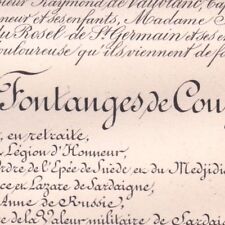 ieur Raymond de Vauvrane, Cap
neur et ses enfants, Madame
du Rosel de St Germain et ses e
ouloureuse qu'ils viennent de fa
Fontanges, de Cou
, en retraite,
Légion d'Honneur,
rdre de l'Epée de Suède et du Medjidi
ce et Lazare de Sardaigne,
Anne de Russie,
re de la Valeur militaire de Sardai